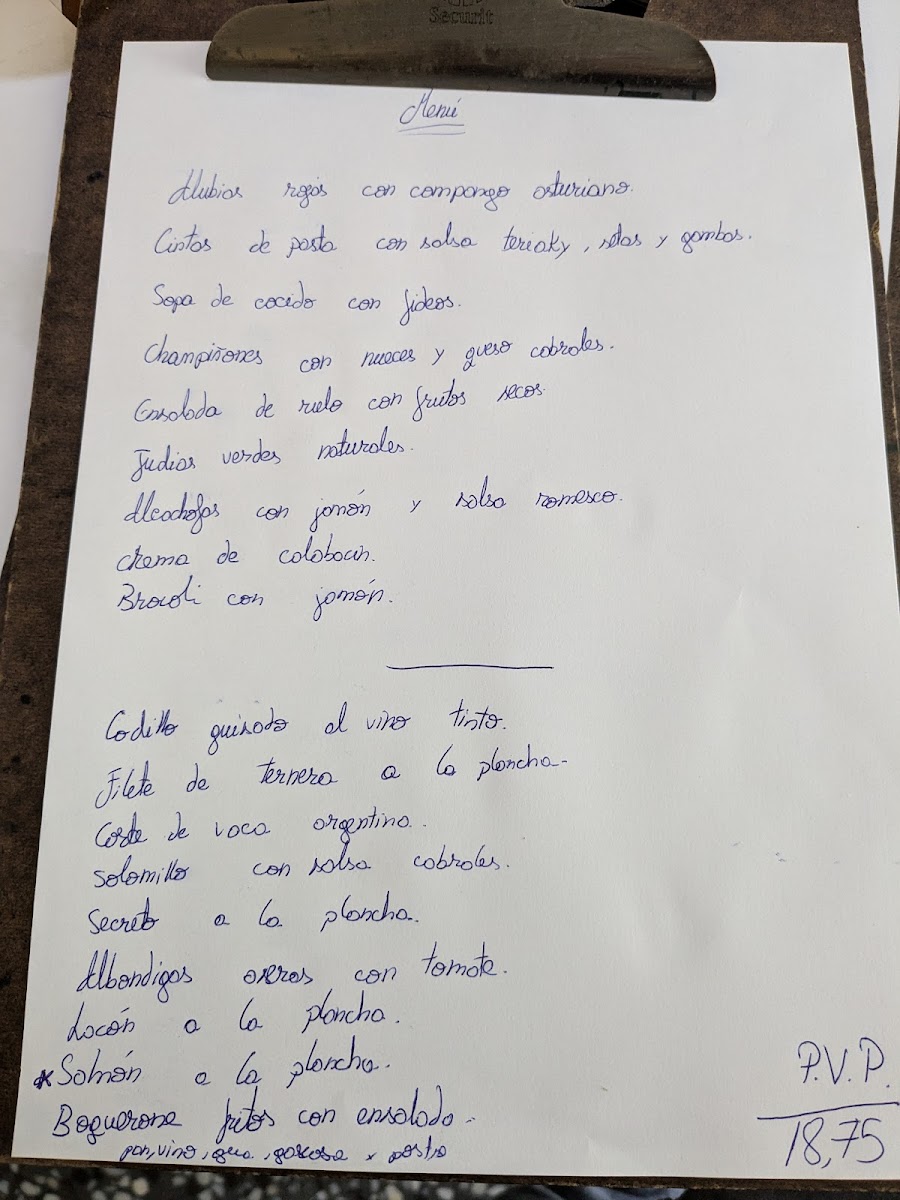 Securit
Menú
Alubias rojas con compango asturiano.
Cintas de pasta con salsa teriaky, setas y gambas.
Sopa de cocido con fideos.
Champiñones con nueces y queso cabrales.
Ensalada de rulo con frutos secos
Judias verdes naturales.
Alcachofas con jamón y salsa romesco.
Crema de calabacin.
Brocoli con jamón.
Codillo guisado al vino tinto.
Filete de ternera a la plancha-
Corte de vaca argentina.
Solomillo con salsa cabrales.
Secreto a la plancha.
Albondigas caseras con tomate.
Lacón a la plancha.
*Salmón a la plancha.
Boquerone fritos con ensalada.
pan, vino, agua, gaseosa y postre
P.V.P.
18,75